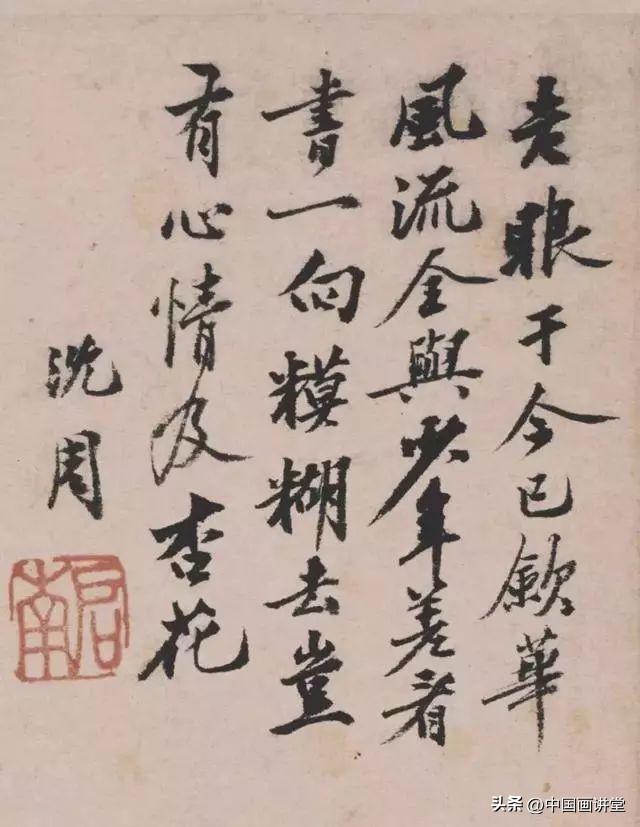 老眼于今已歛華
風流全與少年差看
書一向糢糊去豈
有心情及杏花
沈周
启南
头条 @中国画讲堂